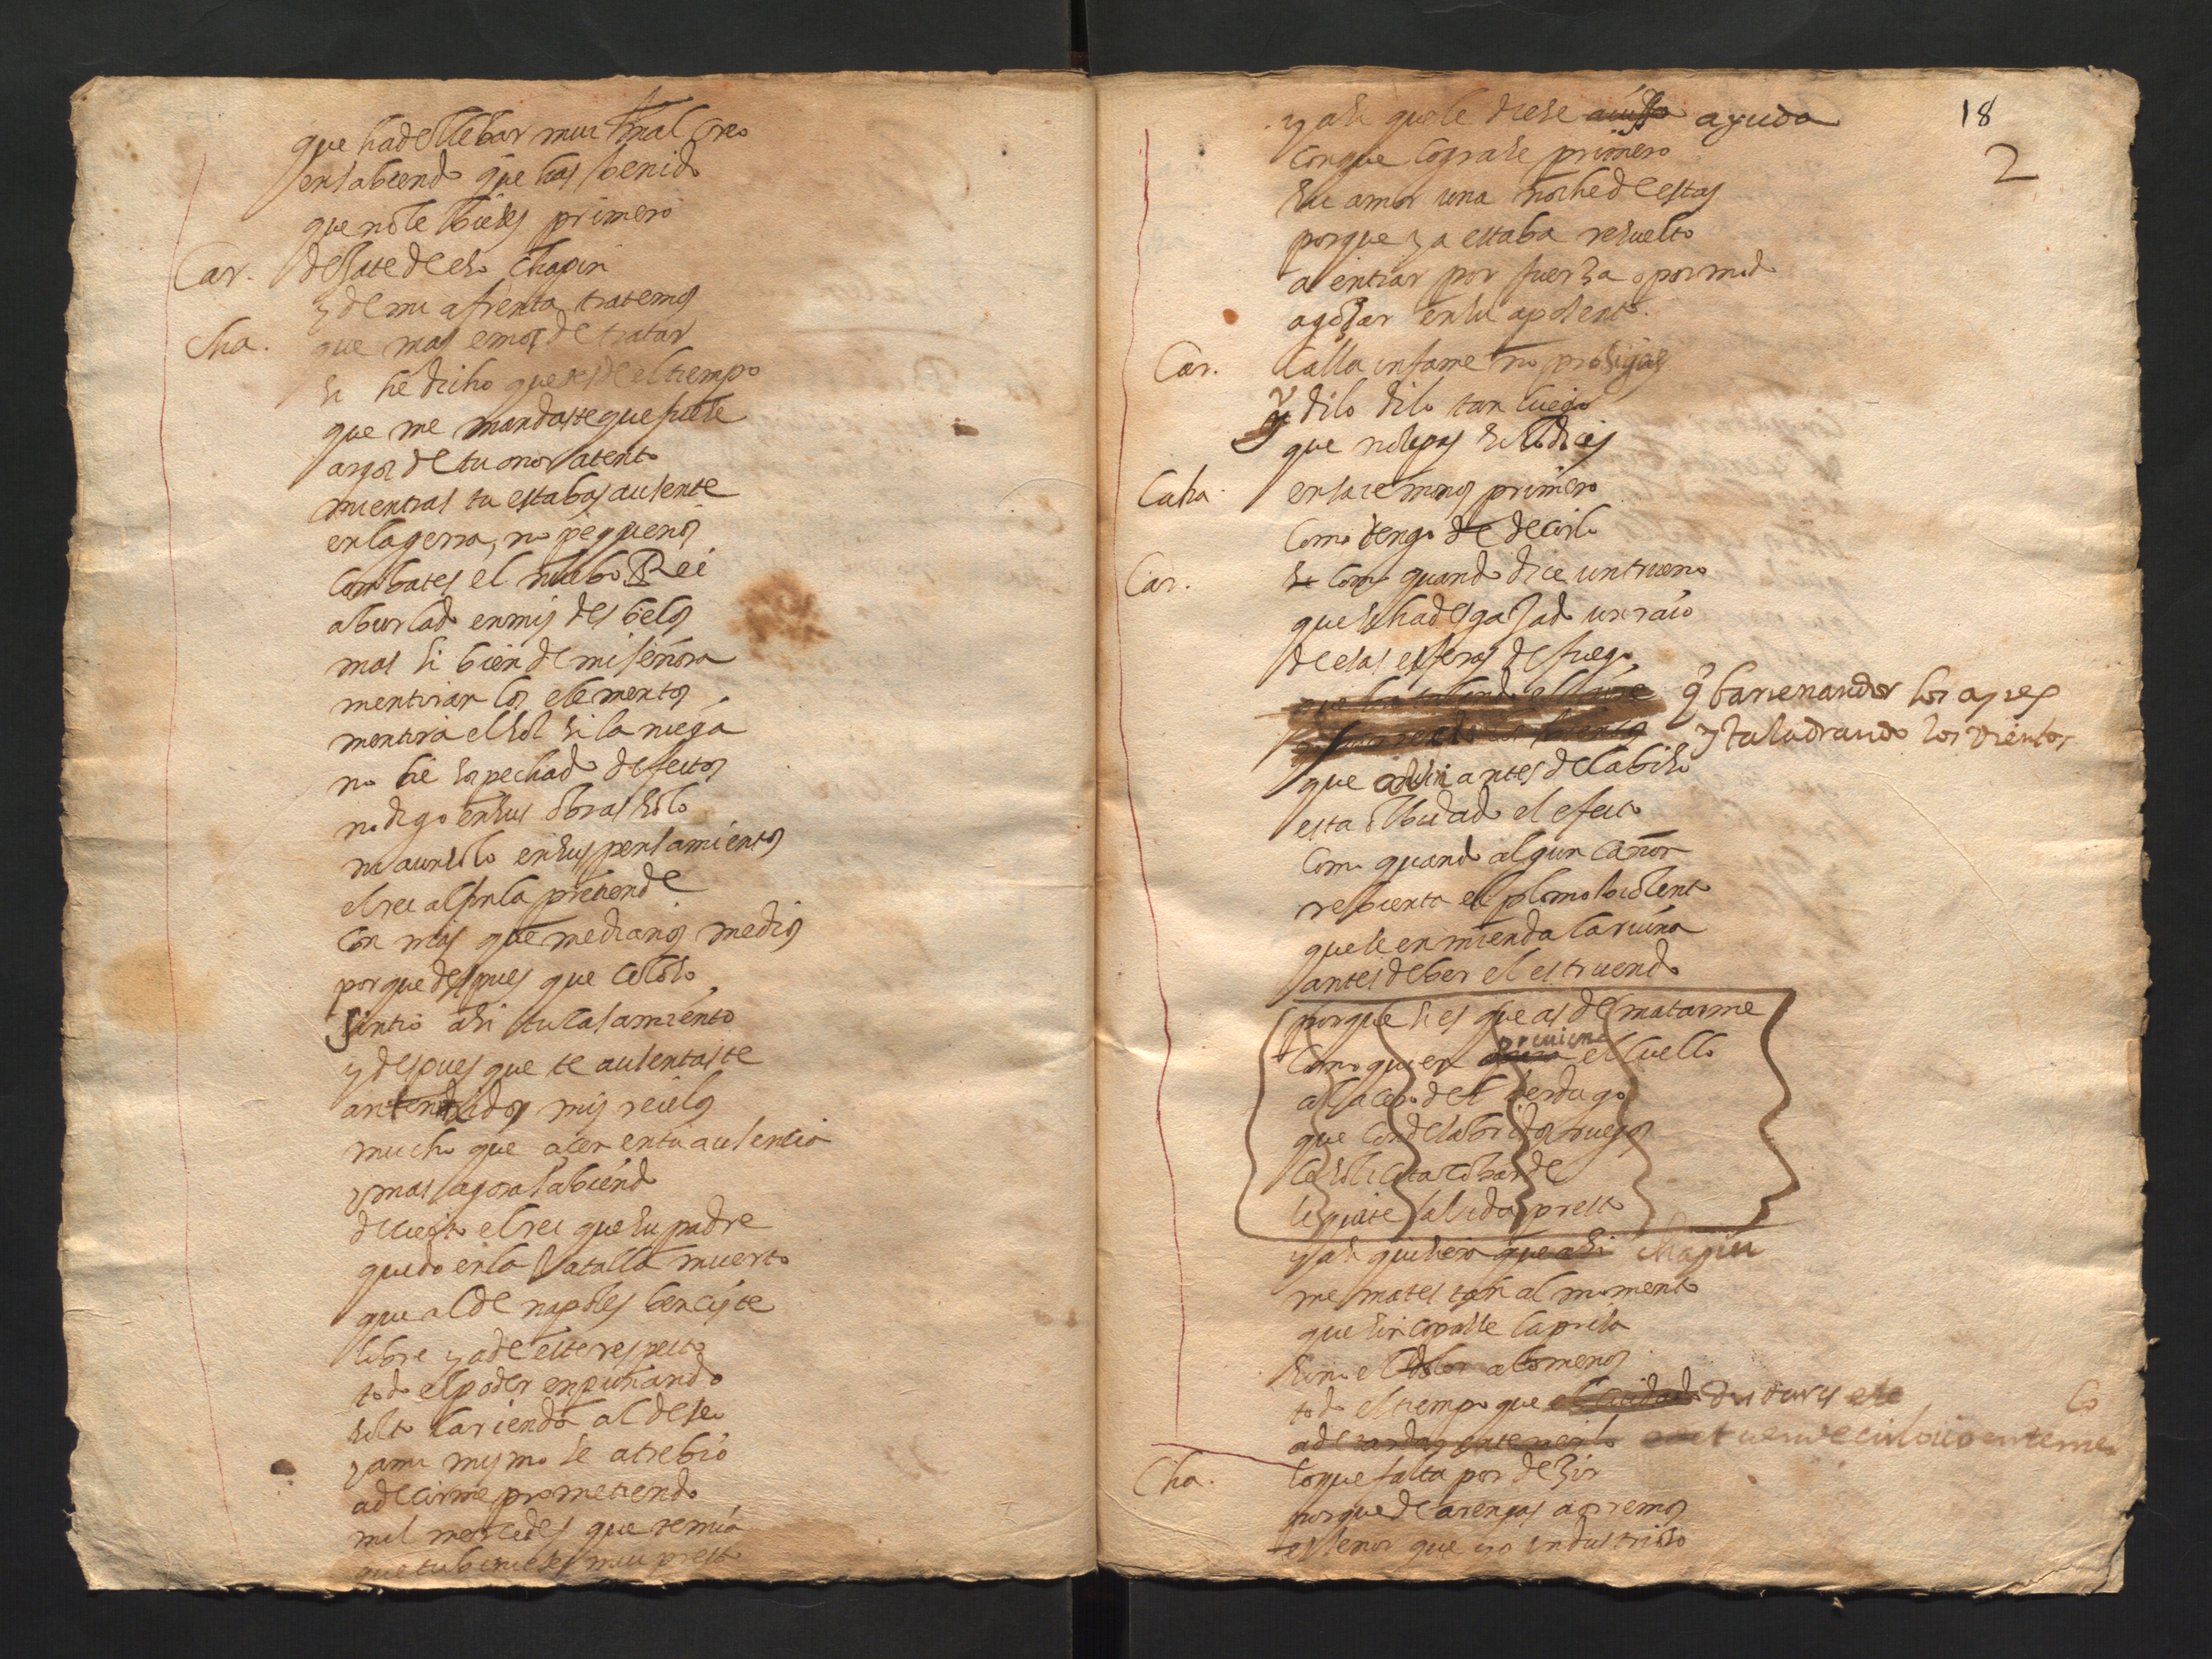 que ha de llebar mui mal creo
en sabiendo que has benido
que no le bieses primero
Car. dejate de eso chapin
y de mi afrenta tratemos
Cha. que mas emos de tratar
si he dicho que desde el tiempo
que me mandaste que fuese
argos de tu onor atento
mientras tu estabas ausente
en la gerra, no pequeños
combates el nuebo Rei
a burlado en mis desbelos
mas si bien de mi señora
mentirian los elementos
mentira el sol si la niega
no he sospechado defectos
no digo en sus obras solo
ni aun solo en sus pensamientos
el rei al fin la pretende
con mas que medianos medios
porque despues que celoso
sintio asi tu casamiento
y despues que te ausentaste
an tenido mis recelos
mucho que acer en tu ausencia
y mas agora sabiendo
de cierto el rei que su padre
quedo en la batalla muerto
que al de napoles benciste
libre ya de este respeto
todo el poder enpuñando
solto la rienda al deseo
y a mi mismo se atrebio
a decirme prometiendo
mil mercedes que temia
que tu binieses mui presto
18
2
y asi que le diese auiso ayuda
con que lograse primero
su amor una noche de estas
porque ya estaba resuelto
a entrar por fuerza o por miedo
a gozar en su aposento.
Car. Calla infame no prosigas
y dilo dilo tan luego
que no sepas si lo dices
Cha. ensaiemonos primero
como tengo de decirlo
Car. como quando dice un trueno
que se ha desgajado un raio
de esas esferas de fuego
q barrenandor los ayres
y taladrando los vientos
que aun antes del abiso
esta olbidado el efecto
como quando algun cañon
rebienta el plomo biolento
que se enmienda la ruina
antes de ber el estruendo
porque si es que as de matarme
como quien preuiene el cuello
al acero del berdugo
que con desabridos ruegos
le solicita cobarde
le quite la bida presto
y asi quisiera que asi chapin
me mates tan al momento
que sin copasse la prisa
sino el dolor a lo menos
todo el tiempo que el cuidado
a de tardar en temerlo
Cha. lo que falta por dezir
porque de arengas aorremos
es señor que yo industrioso